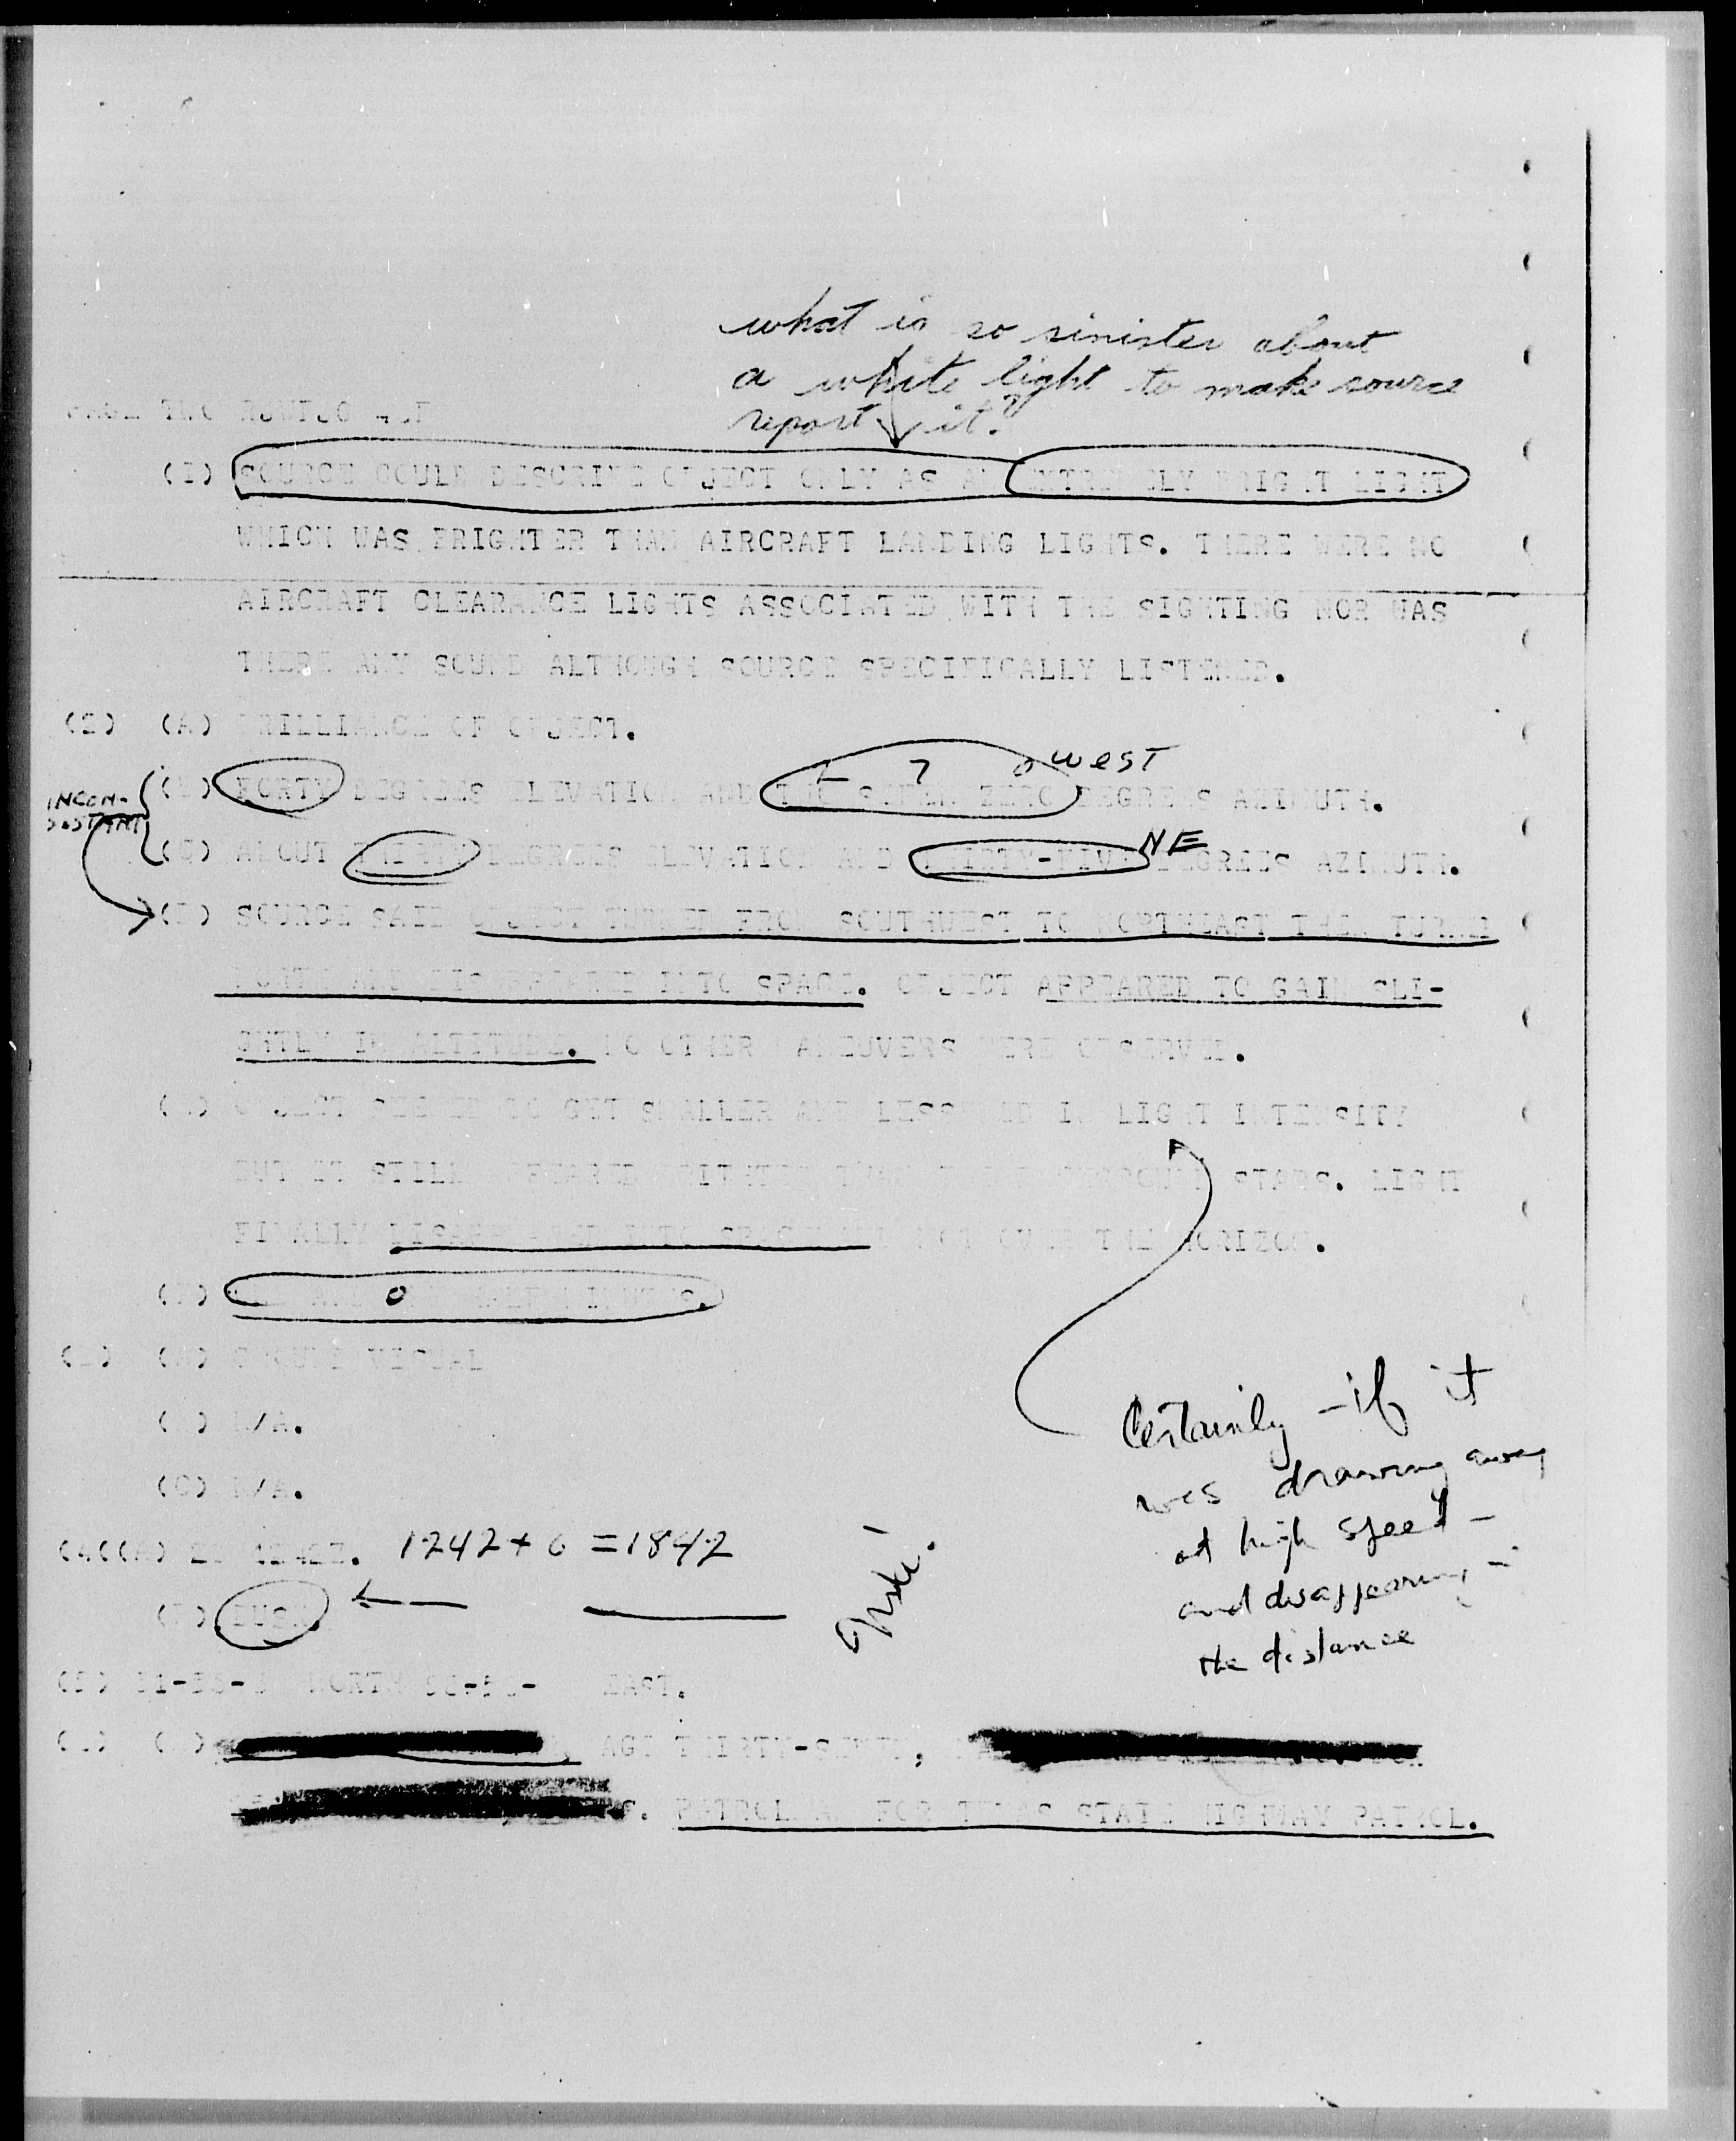 what is so sinister about
a white light to make source
report it?
PAGE TWO RJWTJG
(I) SOURCE COULD DESCRIBE OBJECT ONLY AS AN EXTREMELY BRIGHT LIGHT
WHICH WAS BRIGHTER THAN AIRCRAFT LANDING LIGHTS. THERE WERE NO
AIRCRAFT CLEARANCE LIGHTS ASSOCIATED WITH THE SIGHTING NOR WAS
THERE ANY SOUND ALTHOUGH SOURCE SPECIFICALLY LISTENED.
(2) (A) BRILLIANCE OF OBJECT.
2 7 0 WEST
INCON-
SISTANT
(B) FORTY DEGREES ELEVATION AND TWO SEVEN ZERO DEGREES AZIMUTH.
NE
(C) ABOUT DEGREES ELEVATION AND THIRTY-FIVE DEGREES AZIMUTH.
(D) SOURCE SAID OBJECT TURNED FROM SOUTHWEST TO NORTHEAST THEN TURNED
NORTH AND DISAPPEARED INTO SPACE. OBJECT APPEARED TO GAIN SLI-
GHTLY IN ALTITUDE. NO OTHER MANEUVERS WERE OBSERVED.
(E) OBJECT SEEMED TO GET SMALLER AND LESSENED IN LIGHT INTENSITY
BUT IT STILL APPEARED BRIGHTER THAN STARS. LIGHT
FINALLY DISAPPEARED INTO SPACE NOT OVER THE HORIZON.
(F)
(3) (A) GROUND VISUAL
(B) N/A.
(C) N/A.
Certainly - if it
was drawing away
at high speed -
and disappearing -
the distance
(4((A) 1242 + 6 = 1842
(B) DUSK.
(5) NORTH EAST.
(6) (A) AGE THIRTY-SEVEN,
PATROLMAN FOR TEXAS STATE HIGHWAY PATROL.